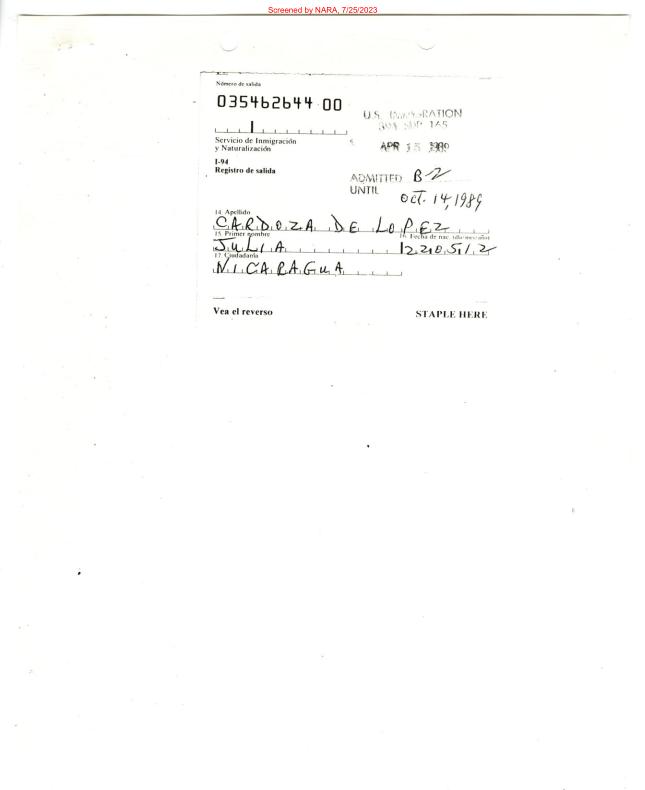 Screened by NARA, 7/25/2023
Número de salida
035462644 00
U.S. IMMIGRATION
165
Servicio de Inmigración
y Naturalización
APR 15
I-94
Registro de salida
ADMITTED B-2
UNTIL Oct. 14, 1989
14. Apellido
CARDOZA DE LOPEZ
15. Primer nombre
16. Fecha de nac. (día/mes/año)
JULIA
220512
17. Ciudadanía
NICARAGUA
Vea el reverso
STAPLE HERE